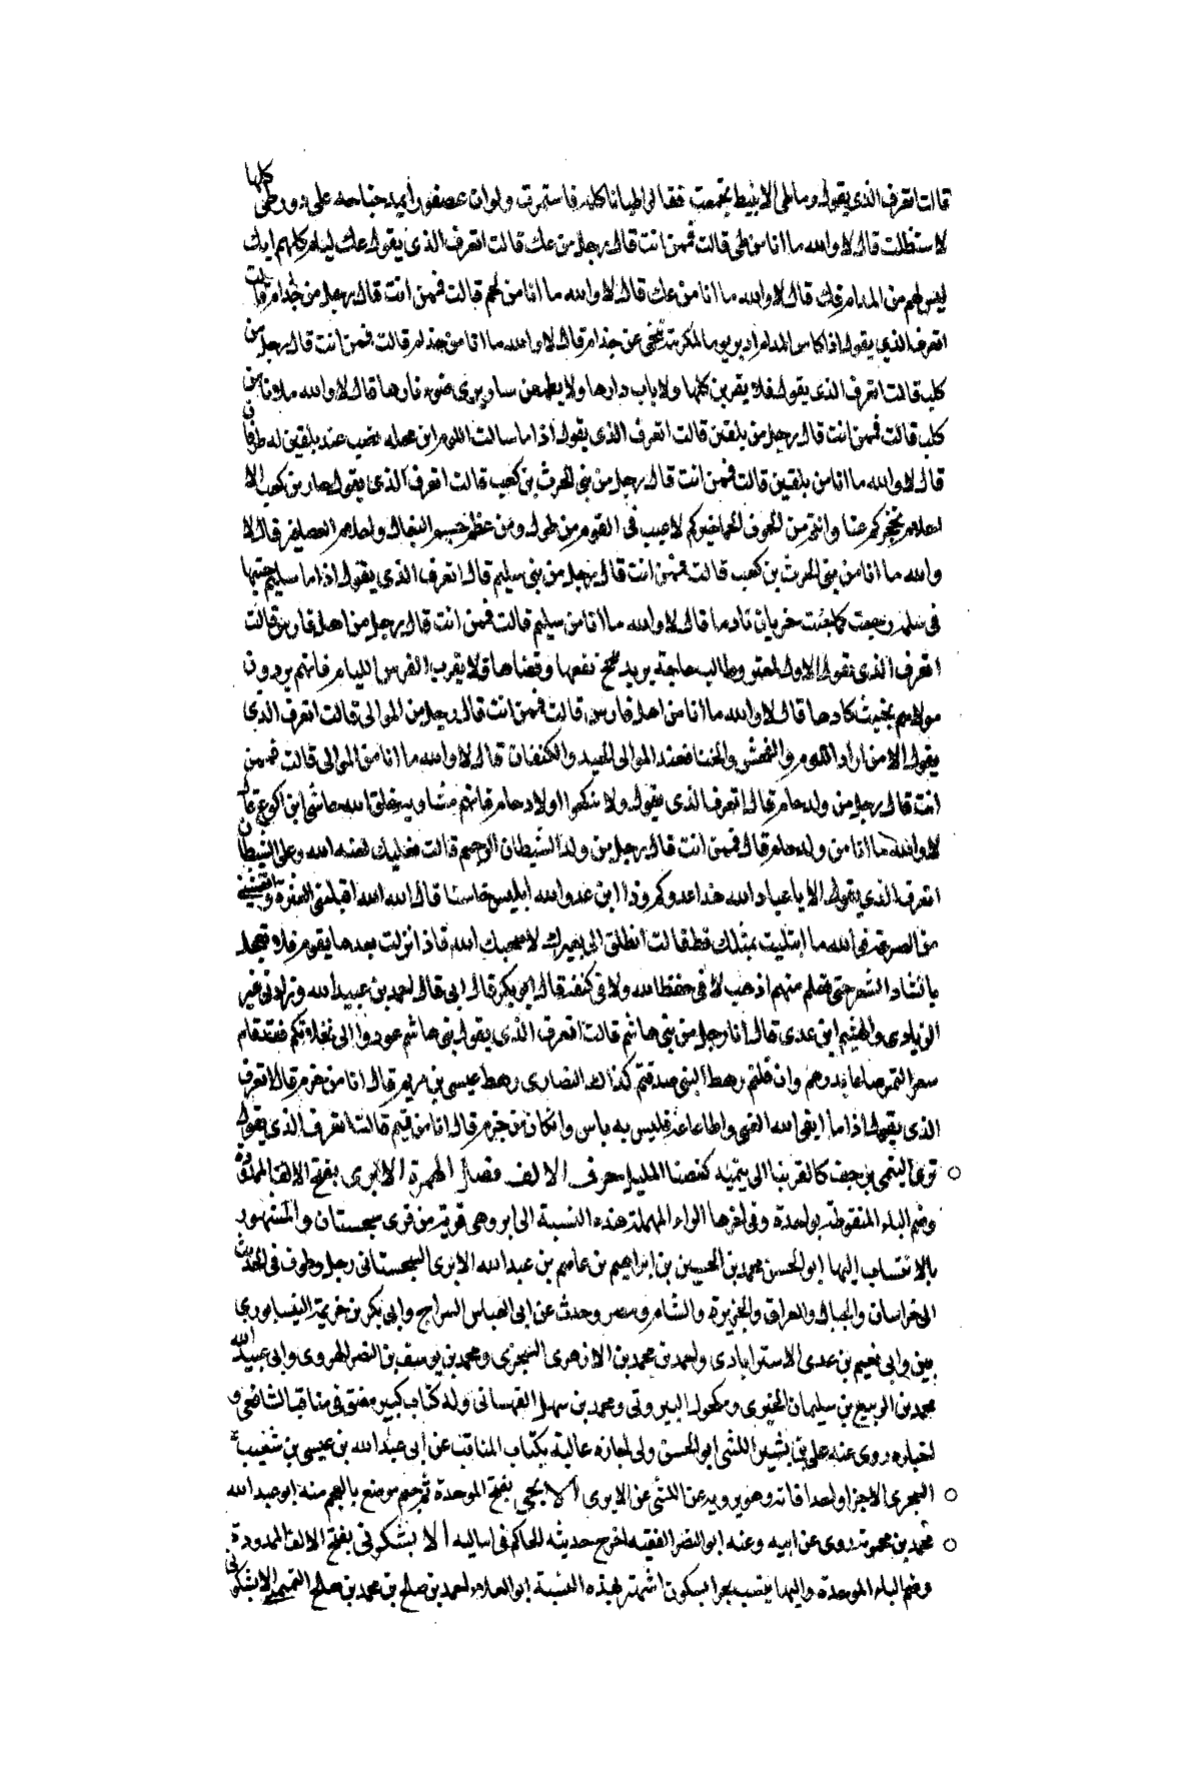 كلها
قالت اتعرف الذى يقول وما طى الا نبيط تجمعت فقالوا طيانا كلمة فاستمرت ولو ان عصفورا يمد جناحه على دور طى
لاستظلت قال لا والله ما انا من طى قالت فممن انت قال رجل من عك قالت اتعرف الذى يقول عك لئام كلهم
ليس لهم من الملام فك قال لا والله ما انا من عك قال لا والله ما انا من لخم قالت فممن انت قال رجل من جذام قالت
اتعرف الذى يقول اذا كاس المدام ادير يوما لمكرمة تنحى عن جذام قال لا والله ما انا من جذام قالت فممن انت قال رجل من
كلب قالت اتعرف الذى يقول فلا يقربن كلبا ولا باب دارها ولا يطمعن سار يرى ضوء نارها قال لا والله ما انا من
كلب قالت فممن انت قال رجل من بلقين قالت اتعرف الذى يقول اذا ما سالت اللوم اين محله تصب عند بلقين له
قال لا والله ما انا من بلقين قالت فممن انت قال رجل من بنى الحرث بن كعب قالت اتعرف الذى يقول حار بن كعب الا
احلام تحجزكم عنا وانتم من الجوف الجماخير لا عيب فى القوم من طول ومن عظم جسم البغال واحلام العصافير قال لا
والله ما انا من بنى الحرث بن كعب قالت فممن انت قال رجل من بنى سليم قال اتعرف الذى يقول اذا ما سليم جئتها
فى رجعت كما جئت خزيان نادما قال لا والله ما انا من سليم قالت فممن انت قال رجل من اهل فارس قالت
اتعرف الذى يقول الا قل لمعتر وطالب حاجة يريد نجح نفعها وقضاها فلا يقرب الفرس الليام فانهم يردون
مولاهم بخبث كادها قال لا والله ما انا من اهل فارس قالت فممن انت قال رجل من الموالى قالت اتعرف الذى
يقول الا من اراد اللوم والفحش والخنا فعند الموالى الجيد والكتفان قال لا والله ما انا من الموالى قالت فممن
انت قال رجل من ولد حام قال اتعرف الذى يقول ولا تنكحوا اولاد حام فانهم مشاويه خلق الله حاشى ابن اكوع قال
لا والله ما انا من ولد حام قال فممن انت قال رجل من ولد الشيطان الرجيم قالت فعليك لعنه الله وعلى الشيطان
اتعرف الذى يقول الا يا عباد الله هذا عدوكم وذا ابن عدو الله ابليس خاسئا قال الله الله اقيلينى العثرة
من الصرعة فوالله ما ابتليت بمثلك قط قالت انطلق الى بعيرك لا صحبك الله فاذا نزلت بعدها بقوم فلا تعجل
بانشاد الشعر حتى تعلم منهم اذهب لا فى حفظ الله ولا فى كنفه قال ابو بكر قال ابى قال احمد بن عبيد الله وزادنى غير
الزيادى والهيثم ابن عدى قال انا رجل من بنى هاشم قالت اتعرف الذى يقول بنى هاشم عودوا الى نخلاتكم فقد قام
سعر التمر صاعا بدرهم وان قلتم رهط النبى صدقتم كذلك النصارى رهط عيسى بن مريم قال انا من جرم قال اتعرف
الذى يقول اذا ما اتقى الله الفتى واطاعه فليس به باس وان كان من جرم قال انا من تيم قالت اتعرف الذى يقول
ترى التيمى يزحف كالقرنبا الى تيمية كعصا المليل حرف الالف فصل الهمزة الآبرى بفتح الالف الممدودة
وضم الباء المنقوطة بواحدة وفى اخرها الراء المهملة هذه النسبة الى ابر وهى قرية من قرى سجستان والمشهور
بالانتساب اليها ابو الحسن محمد بن الحسين بن ابراهيم بن عاصم بن عبد الله الابرى السجستانى رجل وطوف فى الحديث
الى خراسان والجبال والعراق والجزيرة والشام ومصر وحدث عن ابى العباس السراج وابى بكر بن خزيمة النيسابورى
ين وابى نعيم بن عدى الاسترابادى واحمد بن محمد بن الازهرى السجزى ومحمد بن يوسف بن النضر الهروى وابى عبيد الله
محمد بن الربيع بن سليمان الجيزى ومكحول البيروتى ومحمد بن سهل القهستانى وله كتاب كبير مفتق فى مناقب الشافعى و
اخباره روى عنه على بن بشير الليثى ابو الحسن ولى اجازة عالية بكتاب المناقب عن ابى عبد الله بن عيسى بن شعيب
السجزى الا جزا واحدا فاته وهو يرويه عن الليثى عن الابرى الآبجى بفتح الموحدة ثم جيم موضع بالعجم منه ابو عبد الله
محمد بن محمويه روى عن ابيه وعنه ابو النضر الفقيه اخرج حديثه الحاكم فى اماليه الآبسكونى بفتح الالف الممدودة
وضم الباء الموحدة واليها ينسب بحر ابسكون اشتهر بهذه النسبة ابو العلاء احمد بن صلح بن محمد بن صلح التميمى الابسكونى